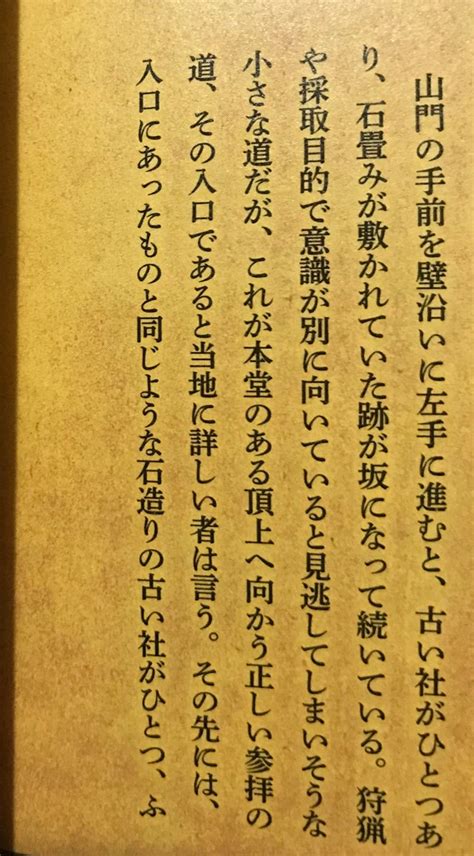 山門の手前を壁沿いに左手に進むと、古い社がひとつあ
り、石畳みが敷かれていた跡が坂になって続いている。狩猟
や採取目的で意識が別に向いていると見逃してしまいそうな
小さな道だが、これが本堂のある頂上へ向かう正しい参拝の
道、その入口であると当地に詳しい者は言う。その先には、
入口にあったものと同じような石造りの古い社がひとつ、ふ